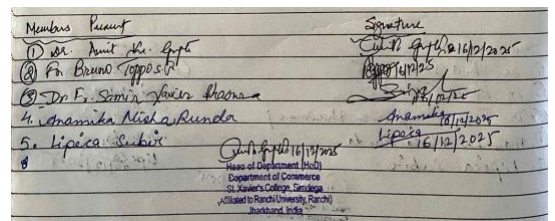 Members Present Signature
① Dr. Amit Kr. Gupta Amit Gupta 16/12/2025
② Fr. Bruno Toppo S.J 16/12/25
③ Dr. Fr. Samir Xavier 16/12/25
4. Anamika Nisha Runda Anamika 16/12/2025
5. Lipica Subir Lipica 16/12/2025
6 Amit Gupta 16/12/2025
Head of Department (HoD)
Department of Commerce
St. Xavier's College, Simdega
(Affiliated to Ranchi University, Ranchi)
Jharkhand, India